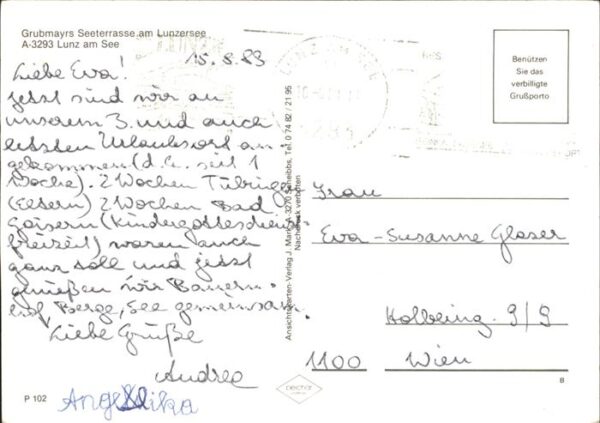 Grubmayrs Seeterrasse am Lunzersee
A-3293 Lunz am See
15.8.89
Liebe Eva!
Jetzt sind wir an
unserem 3. und auch
letzten Urlaubsort an-
gekommen (d.h. seit 1
Woche). 2 Wochen Tübingen
(Eltern) 2 Wochen Bad
Goisern (Kindergottesdienst-
freizeit) waren auch
ganz toll und jetzt
genießen wir Bauern-
hof, Berge, See gemeinsam.
Liebe Grüße
Andrea
Angelika
P 102
Ansichtskarten-Verlag J. Mark, A-3270 Scheibbs, Tel. 0 74 82 / 21 95
Nachdruck verboten
LUNZ AM SEE
Benützen
Sie das
verbilligte
Grußporto
Frau
Eva-Susanne Glaser
Holbeing. 9/9
1100 Wien
B